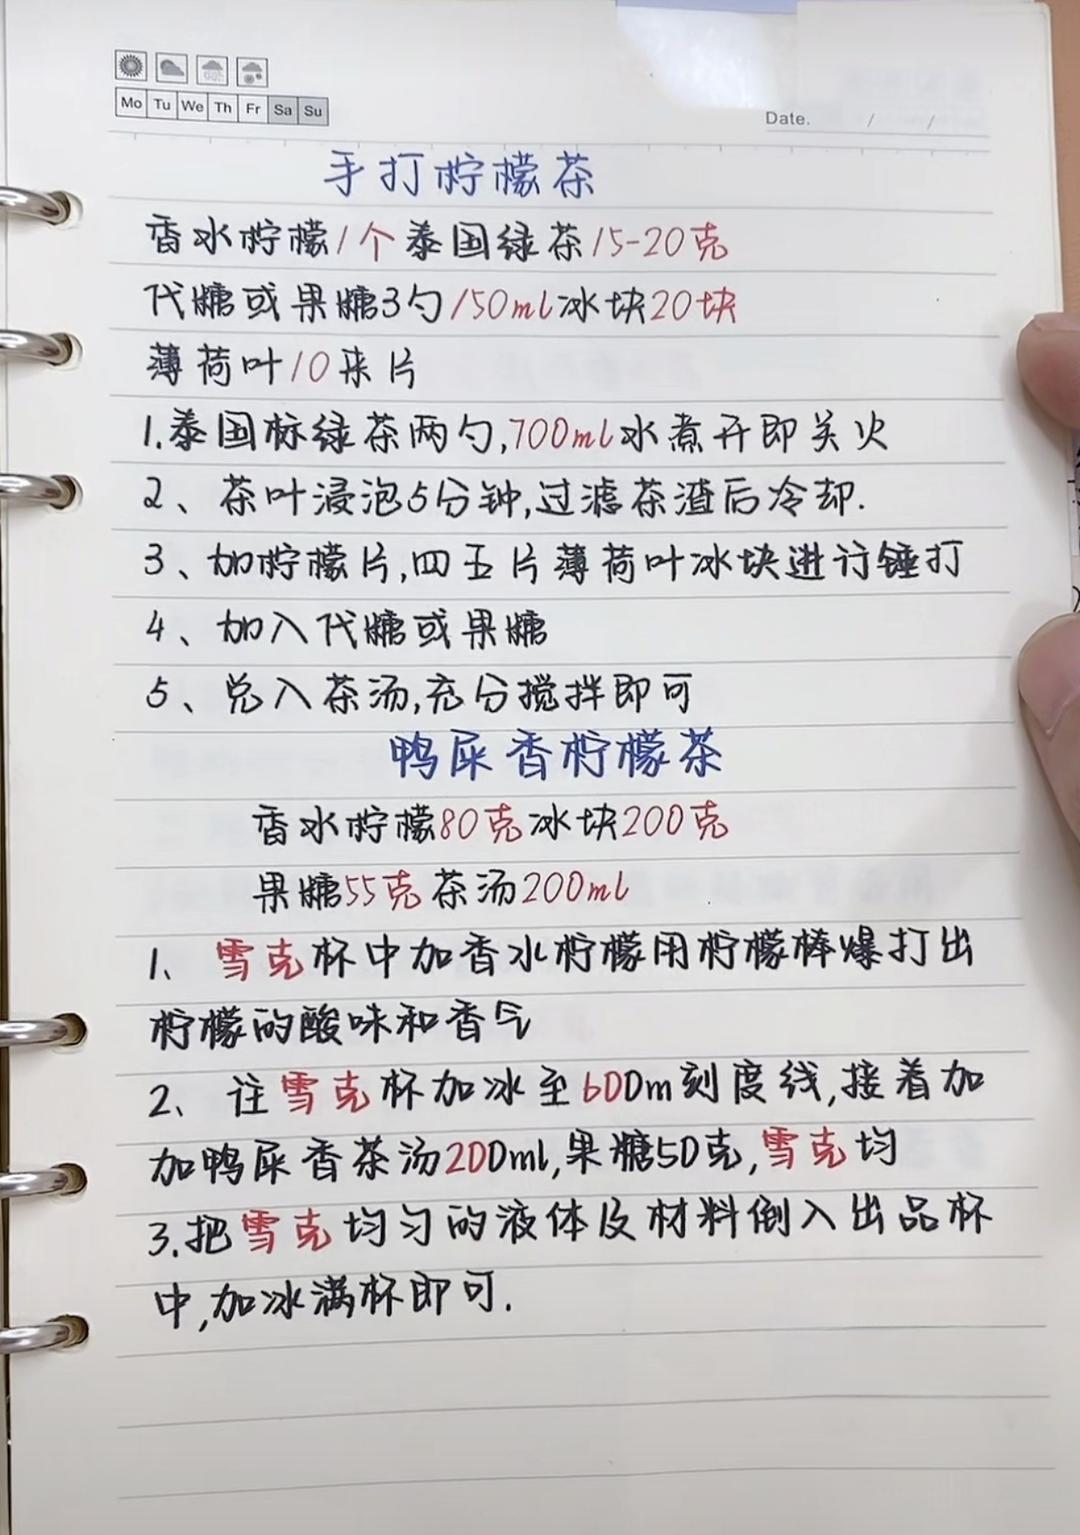 Mo Tu We Th Fr Sa Su
Date. / /
手打柠檬茶
香水柠檬1个泰国绿茶15-20克
代糖或果糖3勺150ml冰块20块
薄荷叶10来片
1.泰国标绿茶两勺,700ml水煮开即关火
2、茶叶浸泡5分钟,过滤茶渣后冷却.
3、加柠檬片,四五片薄荷叶冰块进行锤打
4、加入代糖或果糖
5、兑入茶汤,充分搅拌即可
鸭屎香柠檬茶
香水柠檬80克冰块200克
果糖55克茶汤200ml
1、雪克杯中加香水柠檬用柠檬棒爆打出
柠檬的酸味和香气
2、往雪克杯加冰至600m刻度线,接着加
加鸭屎香茶汤200ml,果糖50克,雪克均
3.把雪克均匀的液体及材料倒入出品杯
中,加冰满杯即可.